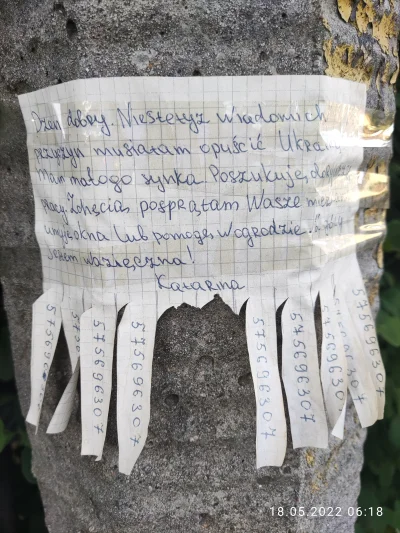 Dzień dobry. Niestety z wiadomych
przyczyn musiałam opuścić
Mam małego synka. Poszukuję
pracy. Z chęcią posprzątam Wasze
umyję okna lub pomogę w ogrodzie.
Jestem wdzięczna!
Katarina
575696307
575696307
575696307
575696307
575696307
575696307
18.05.2022 06:18